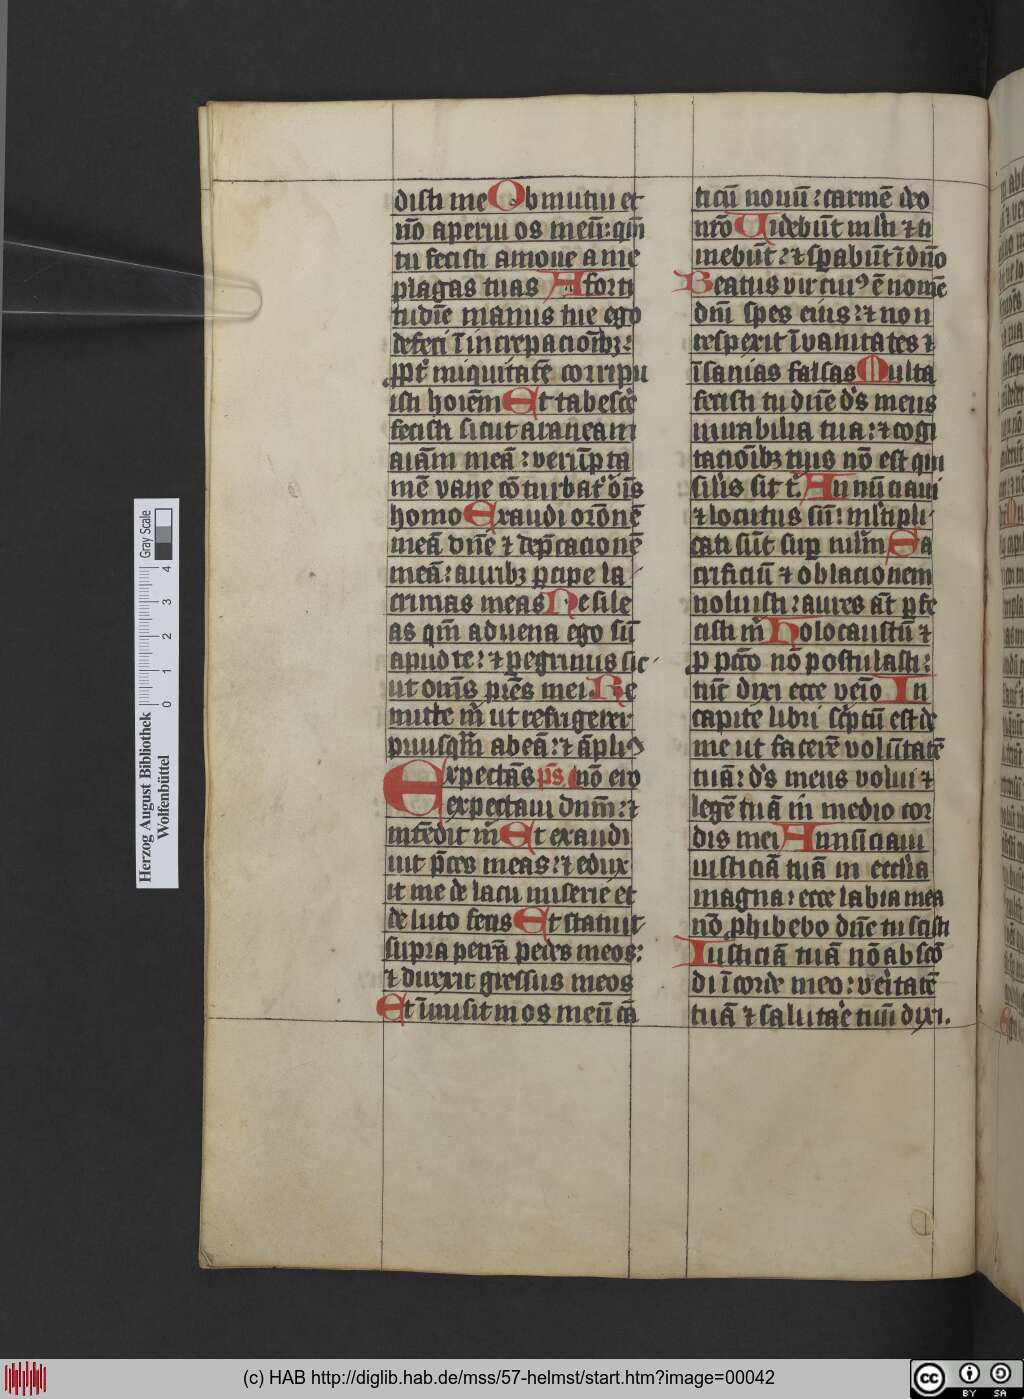 disti me Obmutui et
nō aperui os meū: qm̄
tu fecisti amoue a me
plagas tuas A forti
tudīe manus tue ego
defeci ī increpacioībꝫ:
ꝓpt̄ iniquitatē corripu
isti hoīem Et tabescē
fecisti sicut araneam
aīam meā: verūpta
mē vane cōturbat᷑ oīs
homo Exaudi oronē
meā dnē ⁊ dep̄cacionē
meā: auribꝫ ꝑcipe la
crimas meas Ne sile
as qm̄ aduena ego sū
apud te: ⁊ ꝑegrinus sic
ut om̄s pr̄es mei Re
mitte m̄ ut refrigerer
priusqm̄ abeā: ⁊ āpliꝰ
Expectās p̄s nō ero
expectaui dnm̄: ⁊
intēdit m̄ Et exaudi
uit p̄ces meas: ⁊ edux
it me de lacu miserie et
de luto fecis Et statuit
supra petrā pedes meos:
⁊ direxit gressus meos
Et īmisit in os meū cā
ticū nouū: carmē deo
nr̄o Uidebūt mlti ⁊ ti
mebūt: ⁊ sꝑabūt ī dn̄o
Beatus vir cuiꝰ ē nomē
dn̄i spes eius: ⁊ non
respexit ī vanitates ⁊
īsanias falsas Multa
fecisti tu dn̄e ds̄ meus
mirabilia tua: ⁊ cogi
tacioībꝫ tuis nō est qui
silis sit t̄. Annūciaui
⁊ locutus sū: mltipli
cati sūt suꝑ nūm Sa
crificiū ⁊ oblacionem
noluisti: aures āt ꝑfe
cisti m̄ holocaustū ⁊
ꝓ pctō nō postulasti:
tūc dixi ecce venio In
capite libri sc̄ptū est de
me ut facerē volūtatē
tuā: ds̄ meus volui ⁊
legē tuā in medio cor
dis mei Annūciaui
iusticiā tuā in ecclīa
magna: ecce labia mea
nō ꝓhibebo dn̄e tu scisti
Iusticiā tuā nō abscō
di ī corde meo: veritatē
tuā ⁊ salutare tuū dixi.
Herzog August Bibliothek
Wolfenbüttel
Gray Scale
0 1 2 3 4
(c) HAB http://diglib.hab.de/mss/57-helmst/start.htm?image=00042
cc BY SA